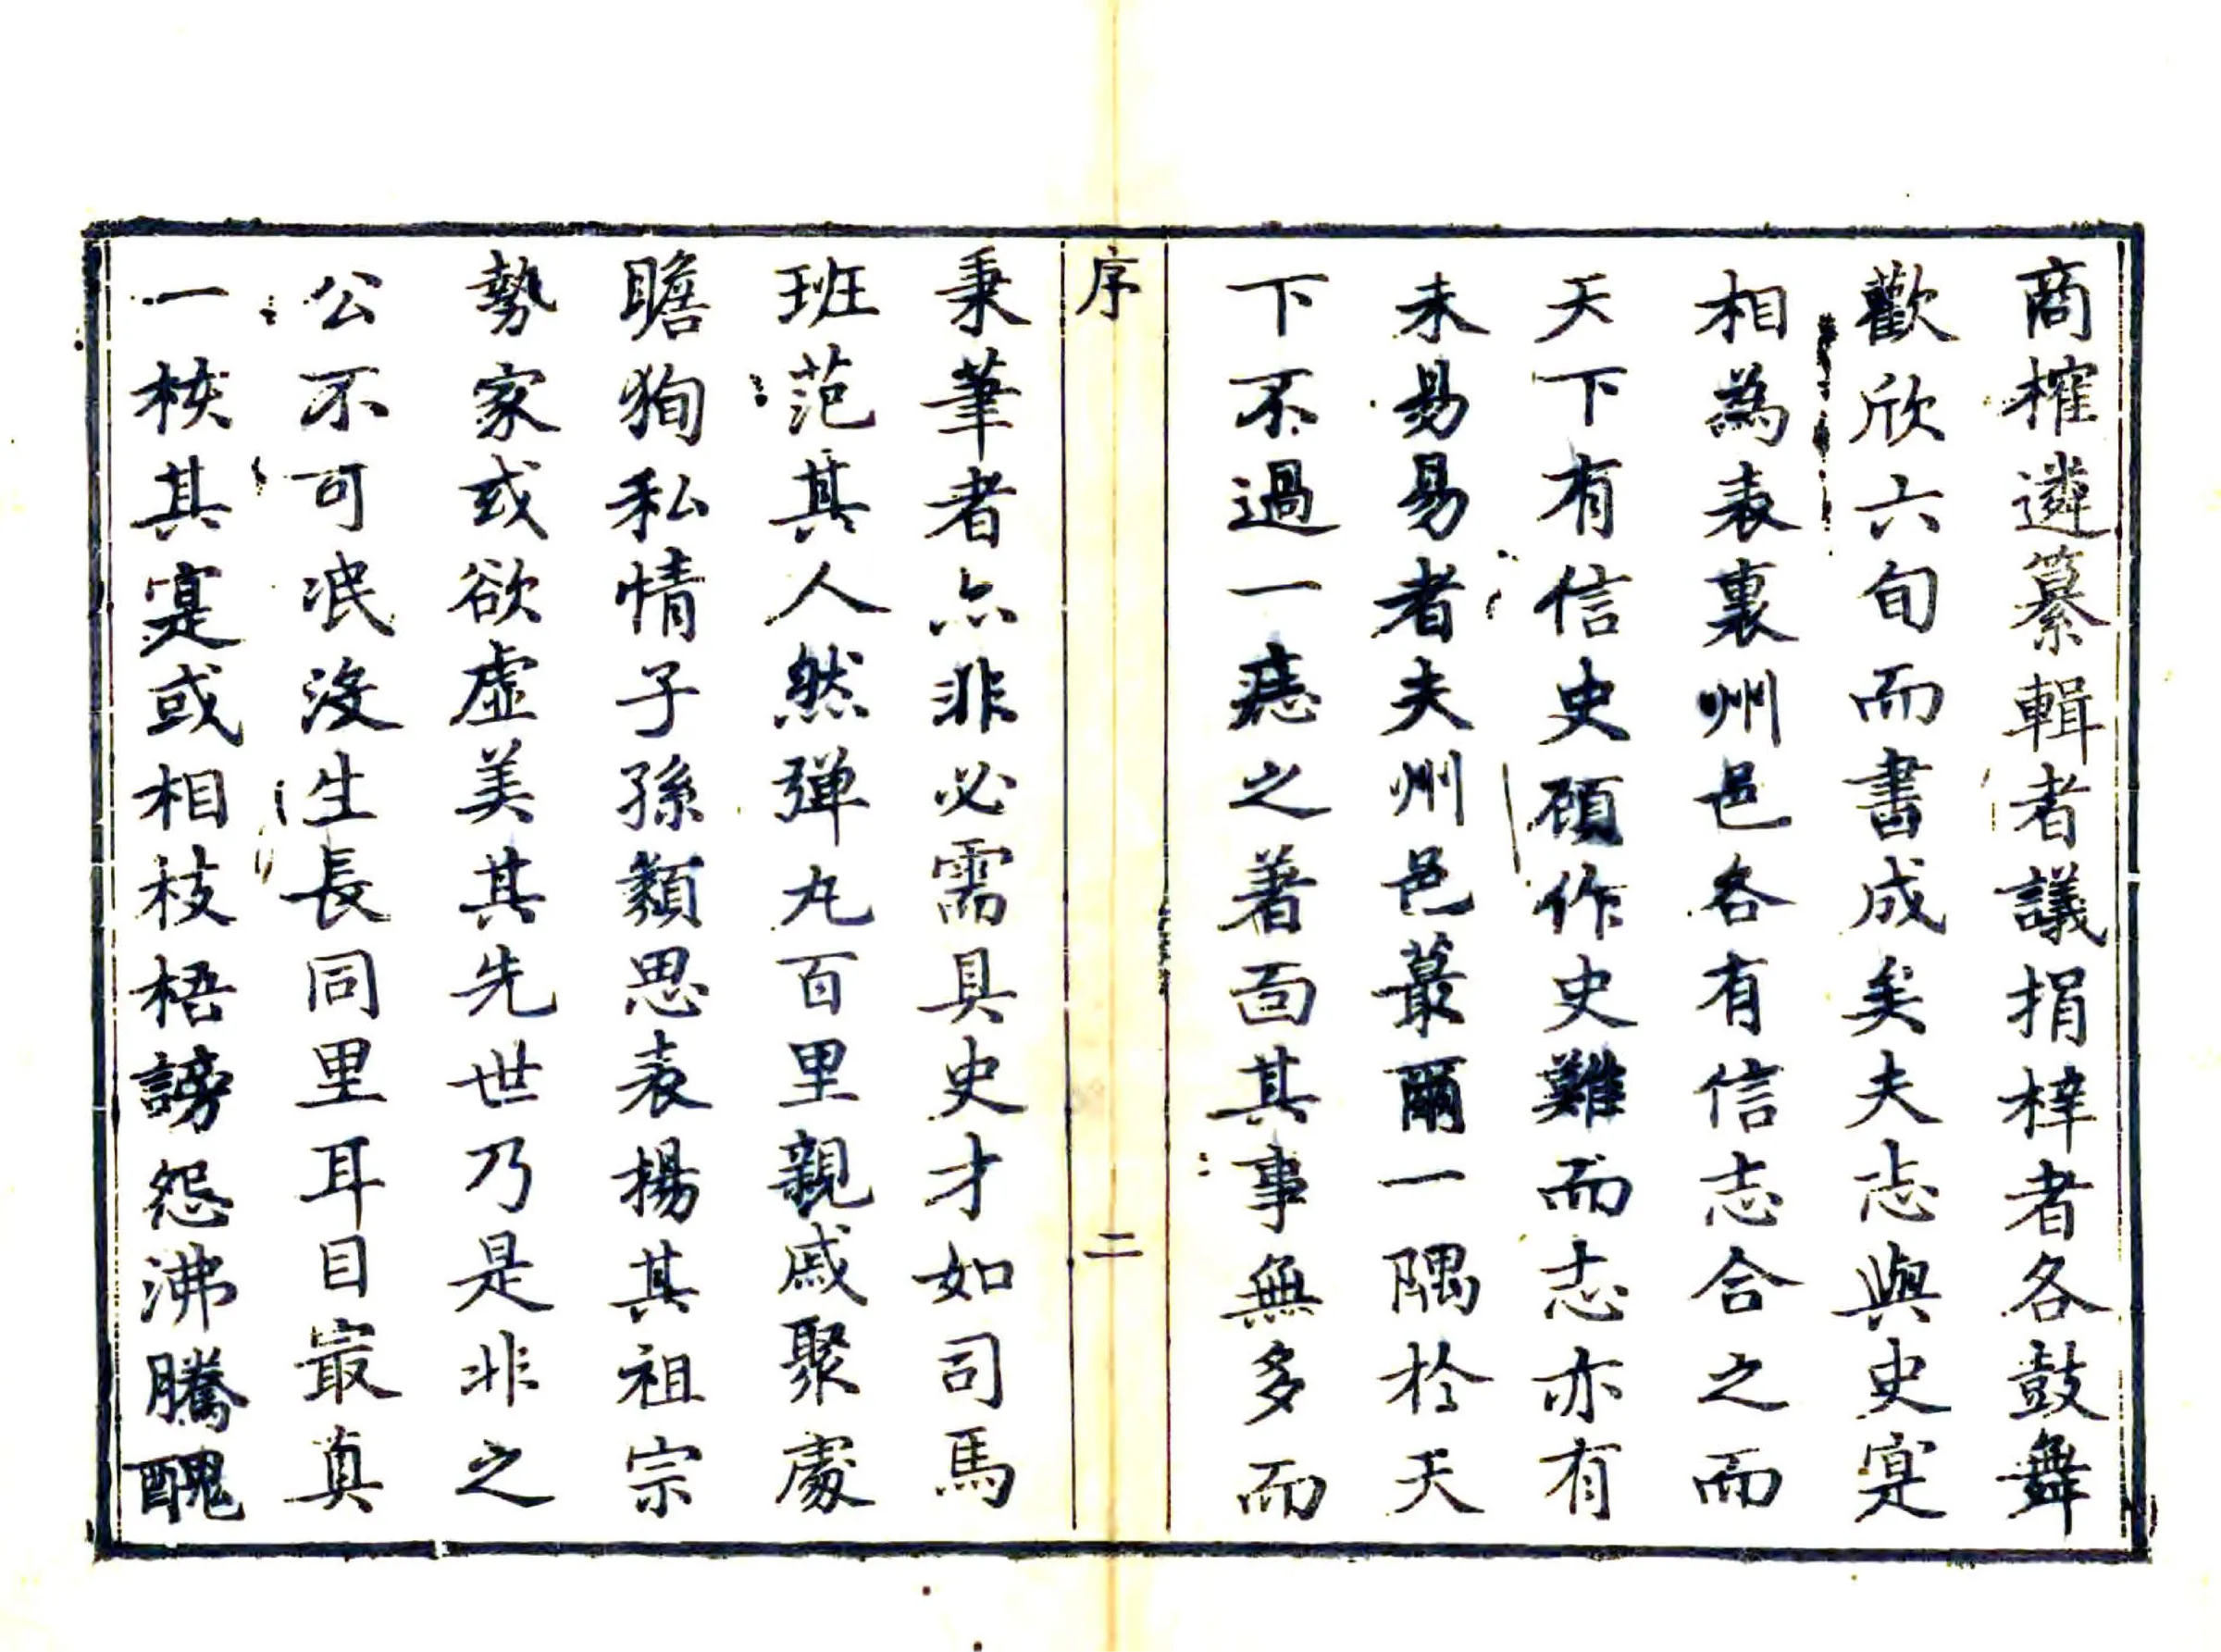 商榷遴纂輯者議捐梓者各鼓舞
歡欣六旬而書成矣夫志與史寔
相為表裏州邑各有信志合之而
天下有信史顧作史難而志亦有
未易易者夫州邑蕞爾一隅於天
下不過一痣之著面其事無多而
序
二
秉筆者亦非必需具史才如司馬
班范其人然弹丸百里親戚聚處
瞻狥私情子孫類思表楊其祖宗
勢家或欲虛美其先世乃是非之
公不可泯沒生長同里耳目最真
一核其寔或相枝梧謗怨沸騰醜